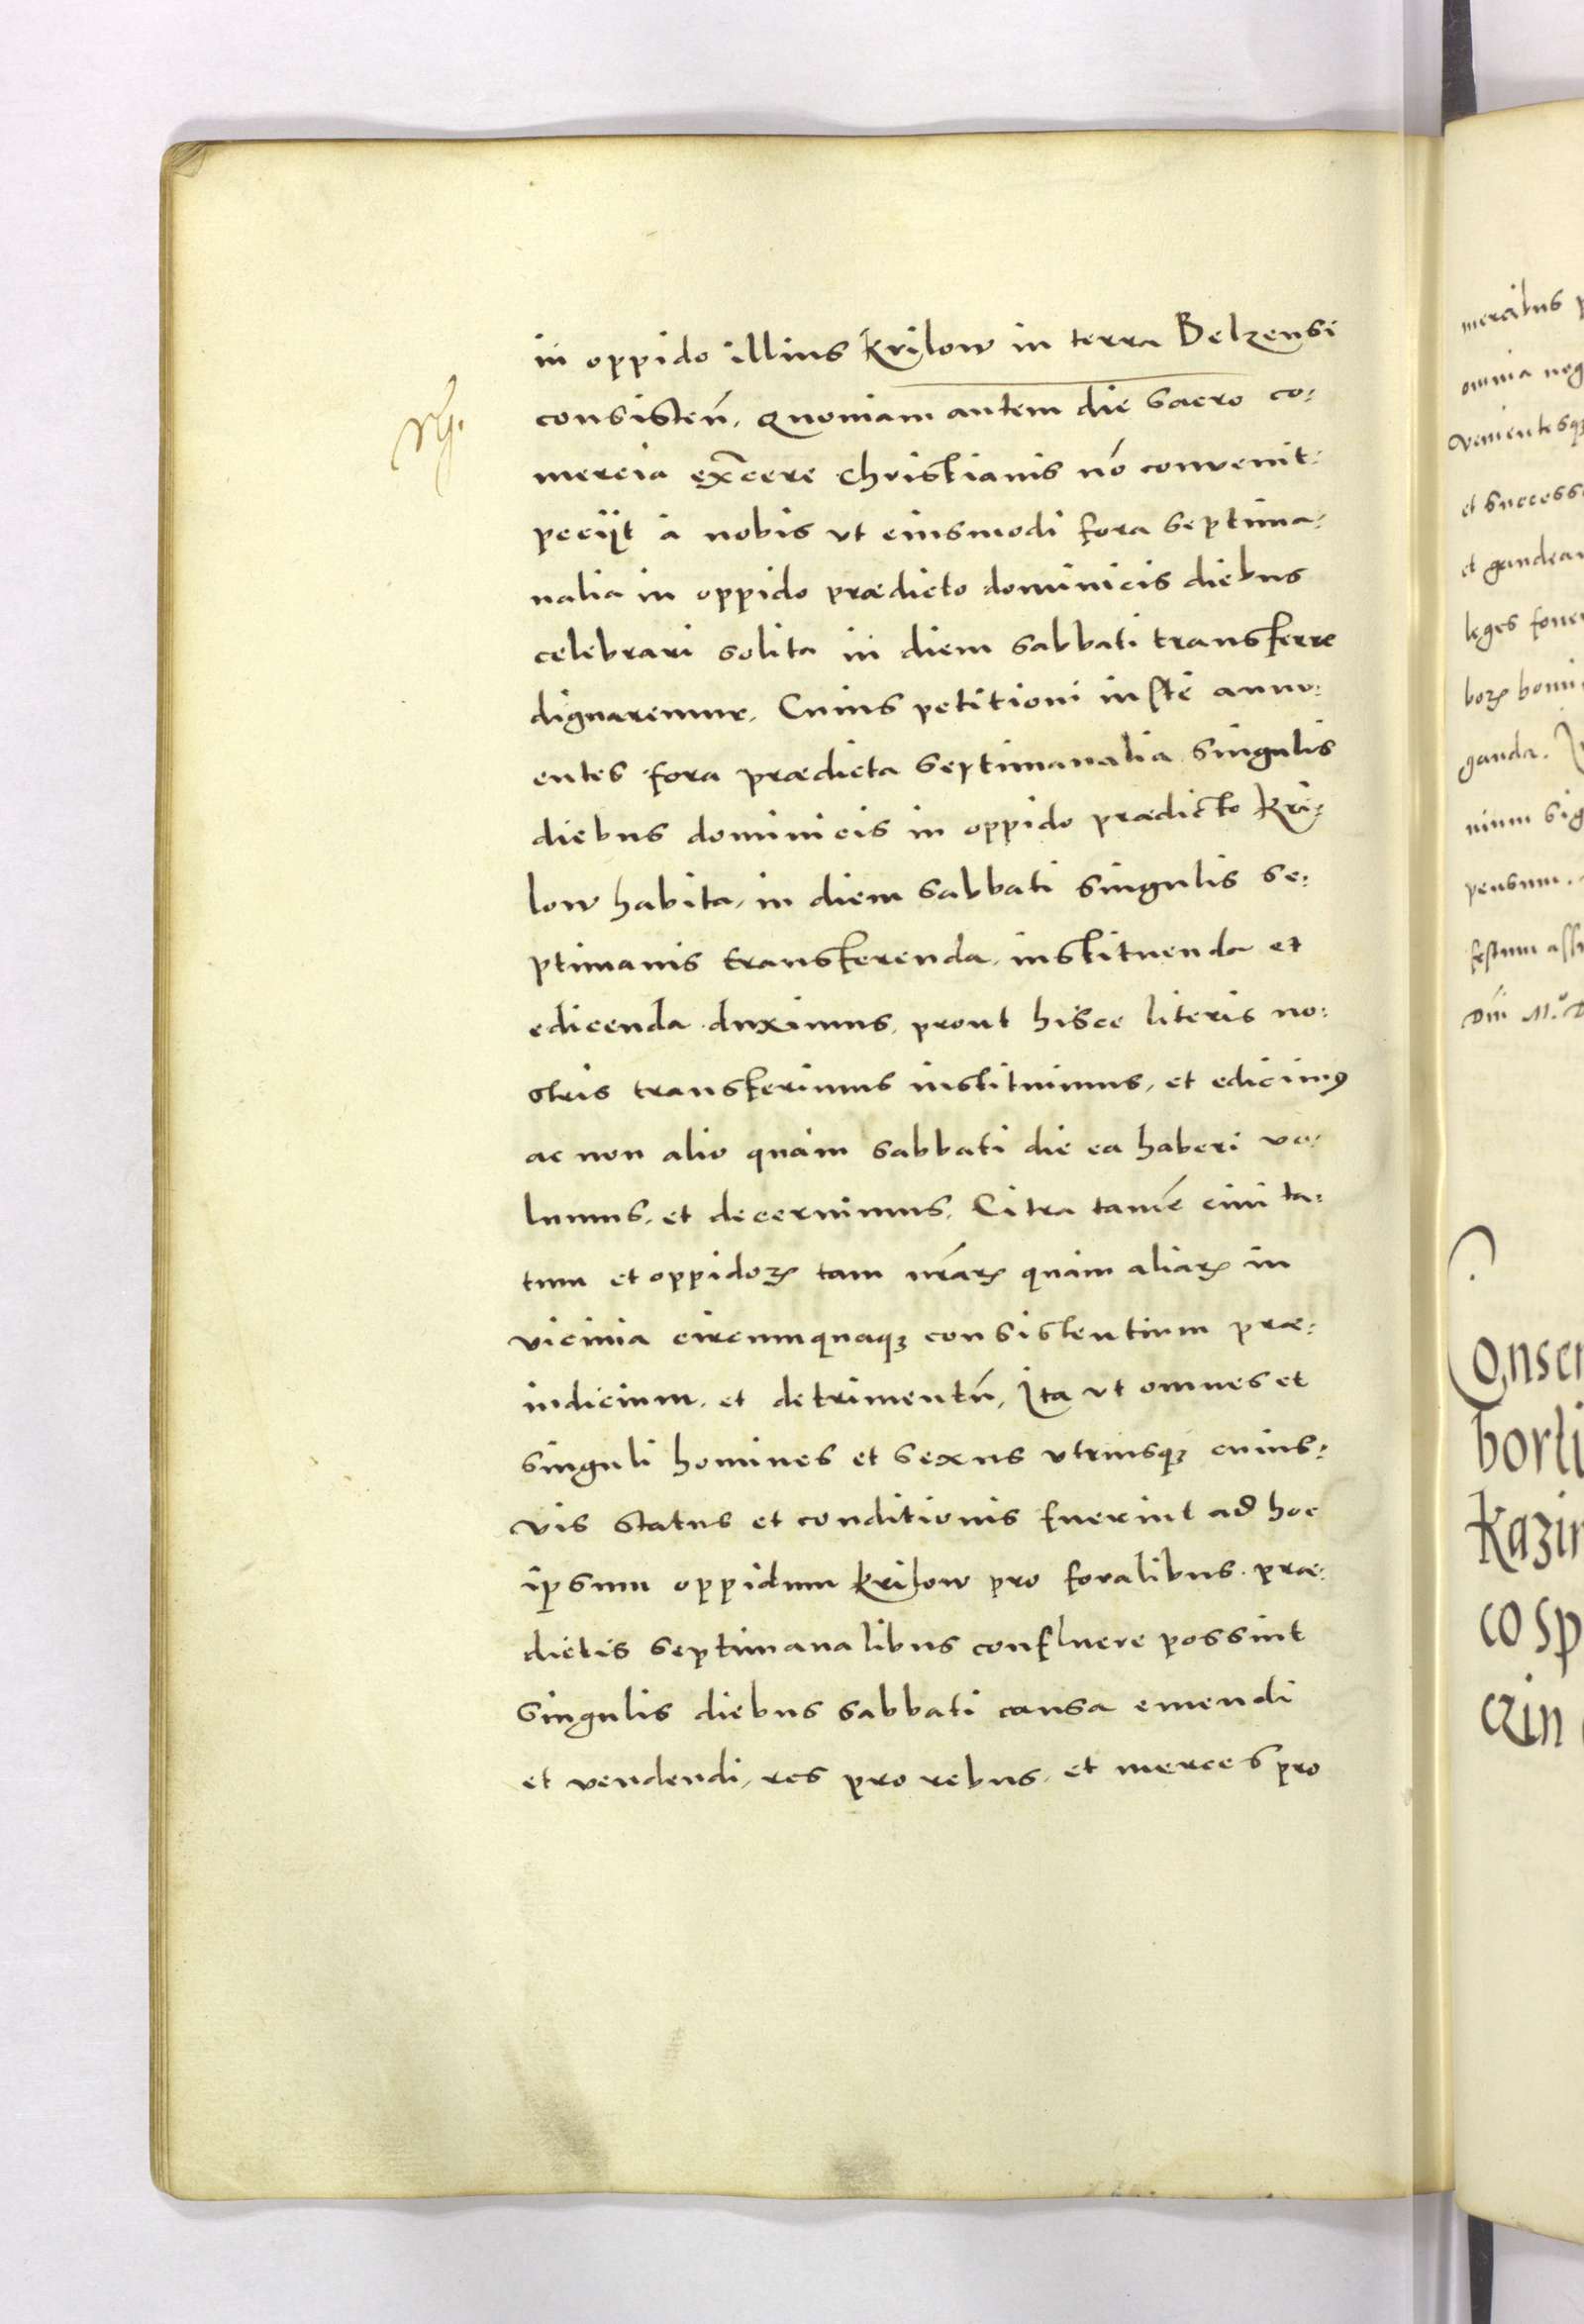 in oppido illius Krilow in terra Belzensi
consisteñ. Quoniam autem die sacro co-
mercia exercere Christianis nō convenit.
peciit à nobis ut eiusmodi fora septima-
nalia in oppido prædicto dominicis diebus
celebrari solita in diem sabbati transferre
dignaremur. Cuius petitioni iuste annu-
entes fora prædicta septimanalia singulis
diebus dominicis in oppido prædicto Kri-
low habita, in diem sabbati singulis se-
ptimanis transferenda, instituenda et
edicenda duximus, prout hisce literis no-
stris transferimus instituimus, et edicimꝰ
ac non alio quàm sabbati die ea haberi vo-
lumus, et decernimus. Citra tamē civita-
tum et oppidoꝝ tam nr̄aꝝ quàm aliaꝝ in
vicinia circumquaqꝫ consistentium præ-
iudicium, et detrimentū, Ita ut omnes et
singuli homines et sexus utriusqꝫ cuius-
vis status et conditionis fuerint ad hoc
ipsum oppidum Krilow pro foralibus præ-
dictis septimanalibus confluere possint
singulis diebus sabbati causa emendi
et vendendi, res pro rebus, et merces pro
mercibus
omnia neg
venientesqꝫ
et success
et gaudea
leges fove
boꝝ homi
ganda.
nium sig
pensum.
festum ass
Dn̄i M. D
Conser
borti
Kazin
co sp
crin